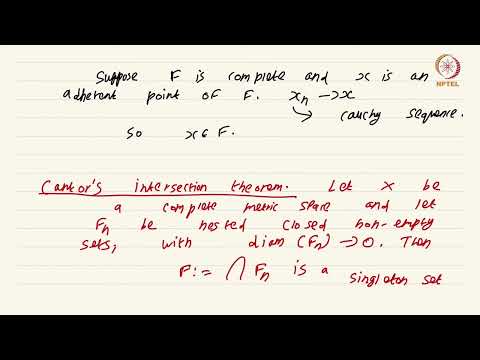 Suppose F is complete and x is an
adherent point of F. xₙ → x
↳ cauchy sequence.
So x ∈ F.
Cantor's intersection theorem. Let X be
a complete metric space and let
Fₙ be nested closed non-empty
sets, with diam (Fₙ) → 0. Then
F := ⋂ Fₙ is a singleton set
NPTEL